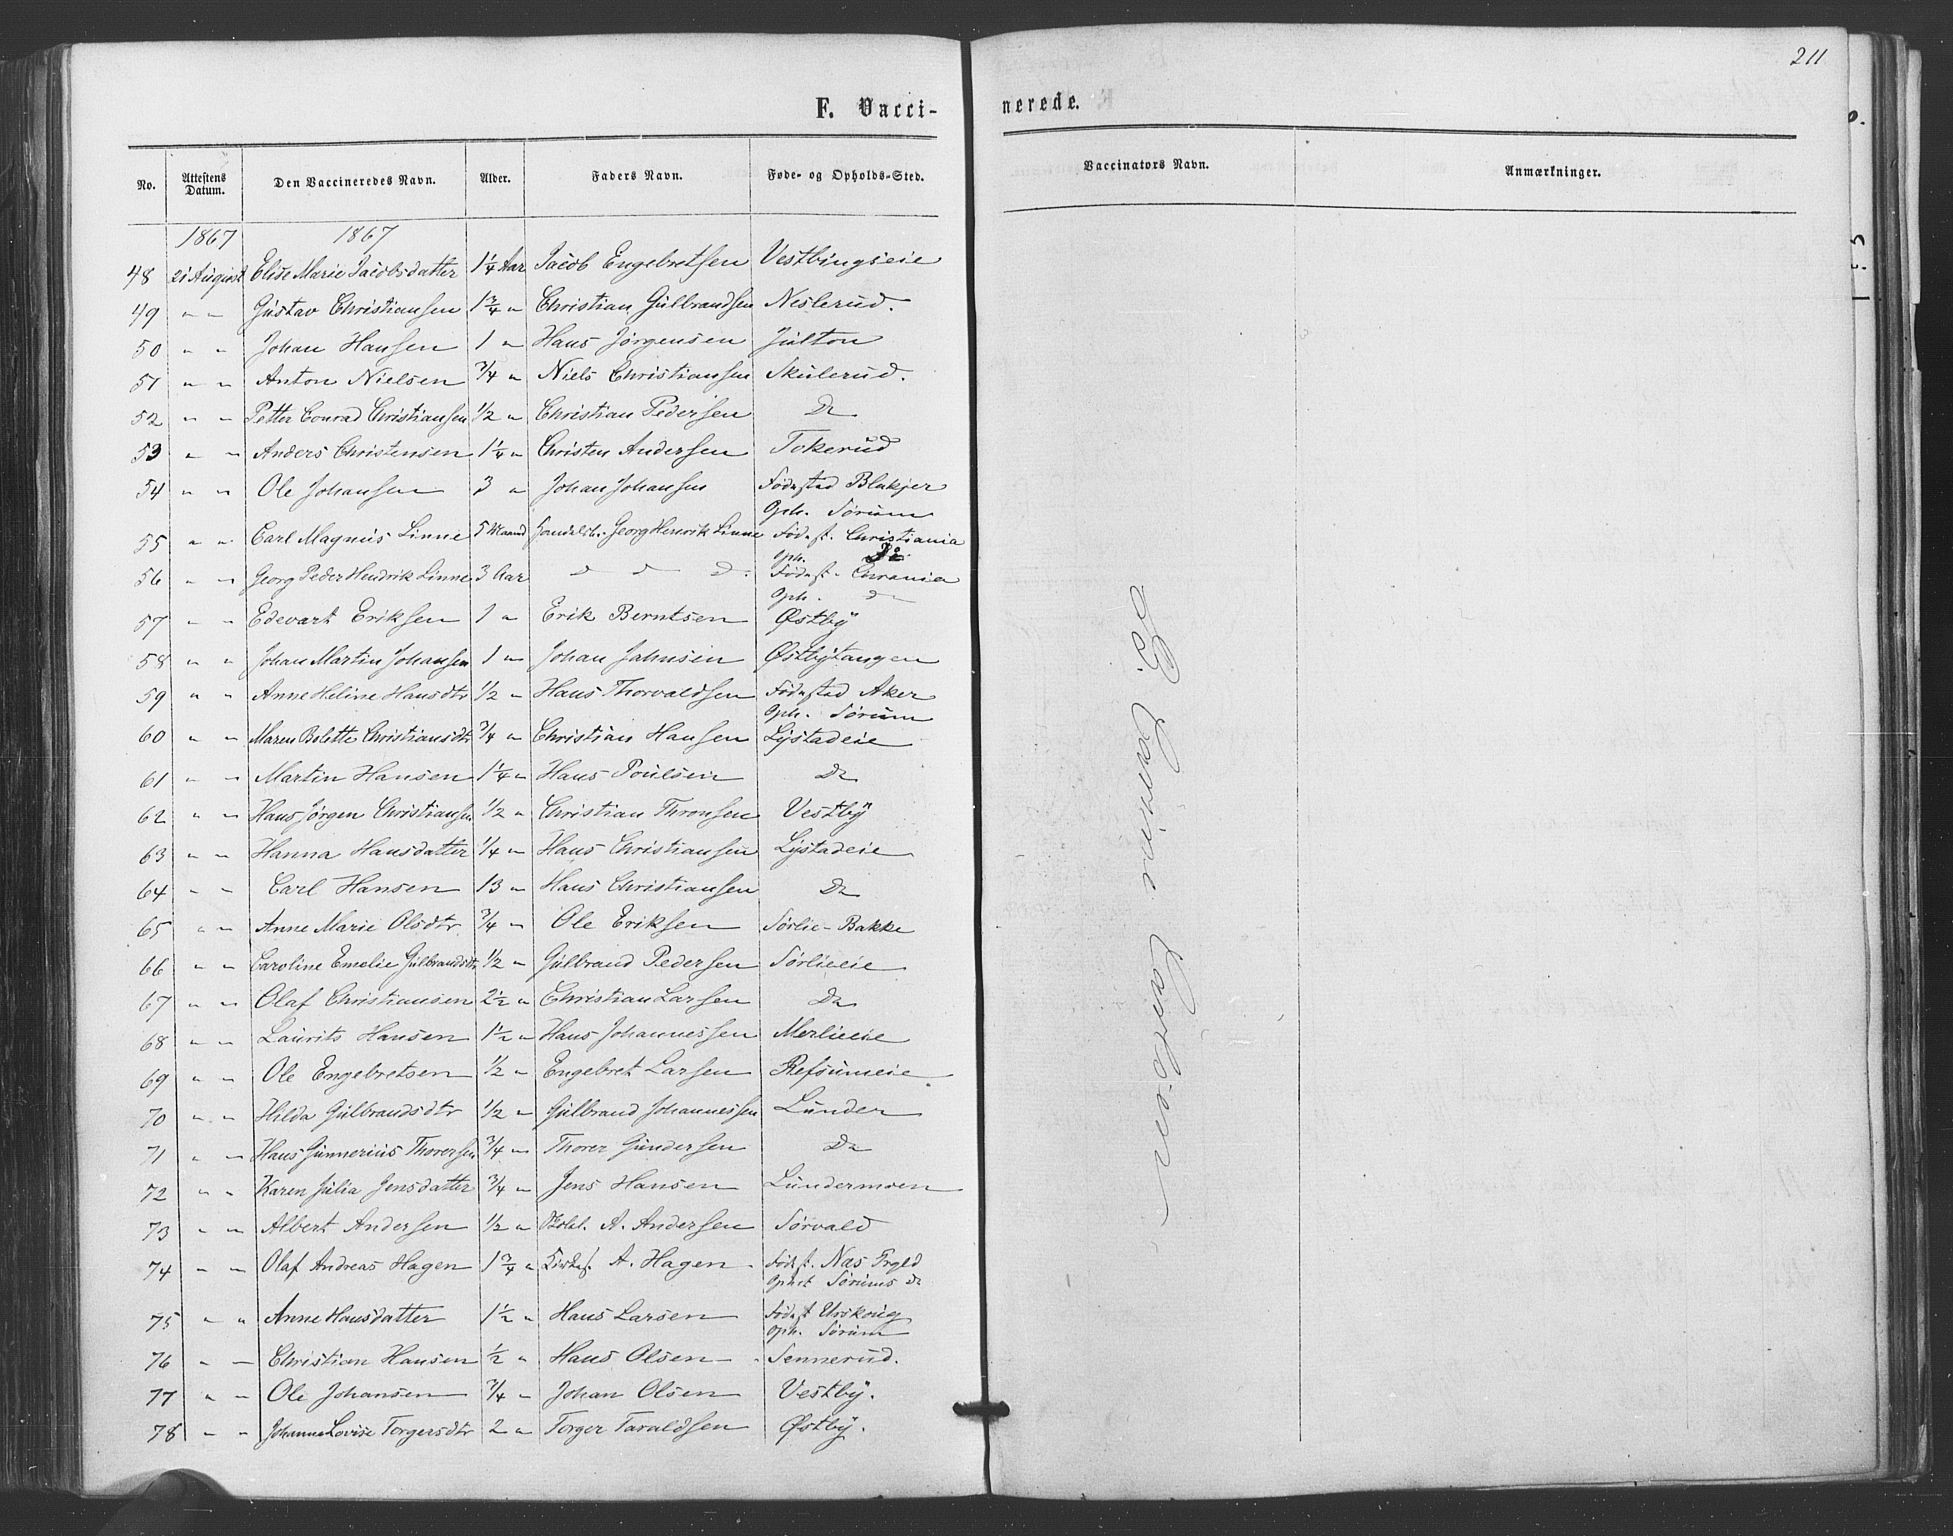 211
F. Vacci-
nerede.
No. Attestens Datum. Den Vaccineredes Navn. Alder. Faders Navn. Føde- og Opholds-Sted. Vaccinators Navn. Anmærkninger.
1867 1867
48 21 August Elise Marie Jacobsdatter 1 1/4 Aar Jacob Engebretsen Vestbyngseie
49 " " Gustav Christiansen 1 3/4 " Christian Gulbrandsen Neslerud.
50 " " Johan Hansen 1 " Hans Jørgensen Julton
51 " " Anton Nielsen 3/4 " Niels Christiansen Skulerud.
52 " " Petter Conrad Christiansen 1/2 " Christian Pedersen Do
53 " " Anders Christensen 1 1/4 " Christen Andersen Tokerud
54 " " Ole Johansen 3 " Johan Johansen Fødested Blakjer
Oph. Sørum
55 " " Carl Magnus Linne 5 Maaned Handelsb. Georg Henrik Linne Fødest. Christiania
Oph. Do
56 " " Georg Peder Hendrik Linne 3 Aar d d d. Fødest. Chrania
Oph. do
57 " " Edevart Eriksen 1 " Erik Berntsen Østby
58 " " Johan Martin Johansen 1 " Johan Jahnsen Østbytangen
59 " " Anne Heline Hansdtr 1/2 " Hans Thorvaldsen Fødested Aker
Oph. Sørum
60 " " Maren Bolette Christiansdtr 3/4 " Christian Hansen Lystadeie
61 " " Martin Hansen 1 1/4 " Hans Poulsen Do
62 " " Hans Jørgen Christiansen 1/2 " Christian Thronsen Vestby
63 " " Hanna Hansdatter 1/4 " Hans Christiansen Lystadeie
64 " " Carl Hansen 13 " Hans Christiansen Do
65 " " Anne Marie Olsdtr 3/4 " Ole Eriksen Sørlie-Bakke
66 " " Caroline Emelie Gulbrandsdtr 1/2 " Gulbrand Pedersen Sørlieeie
67 " " Olaf Christiansen 2 1/2 " Christian Larsen Do
68 " " Laurits Hansen 1 1/2 " Hans Johannessen Merlieeie
69 " " Ole Engebretsen 1/2 " Engebret Larsen Refsumeie
70 " " Hilda Gulbrandsdtr 1/2 " Gulbrand Johannessen Lunder
71 " " Hans Gunnerius Thorersen 3/4 " Thorer Gundersen Do
72 " " Karen Julia Jensdatter 3/4 " Jens Hansen Lundermoen
73 " " Albert Andersen 1/2 " A. Andersen Sørvald
74 " " Olaf Andreas Hagen 1 3/4 " Kirkes. A. Hagen Fødest. Næs Prgld
Ophst Sørums do
75 " " Anne Hansdatter 1 1/2 " Hans Larsen Fødest Urskoug
Oph. Sørum
76 " " Christian Hansen 1/2 " Hans Olsen Sennerud.
77 " " Ole Johansen 3/4 " Johan Olsen Vestby.
78 " " Johanne Lovise Torgersdtr 2 " Torger Taraldsen Østby.